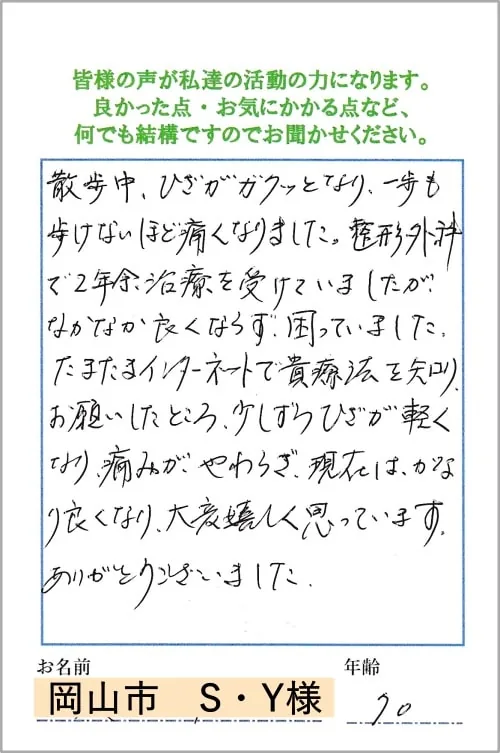 皆様の声が私達の活動の力になります。
良かった点・お気にかかる点など、
何でも結構ですのでお聞かせください。
散歩中、ひざがガクッとなり、一歩も
歩けないほど痛くなりました。整形外科
で2年余治療を受けていましたが、
なかなか良くならず、困っていました。
たまたまインターネットで貴療法を知り、
お願いしたところ、少しずつひざが軽く
なり、痛みが、やわらぎ、現在は、かな
り良くなり、大変嬉しく思っています。
ありがとうございました。
お名前
年齢
岡山市 S・Y様
70